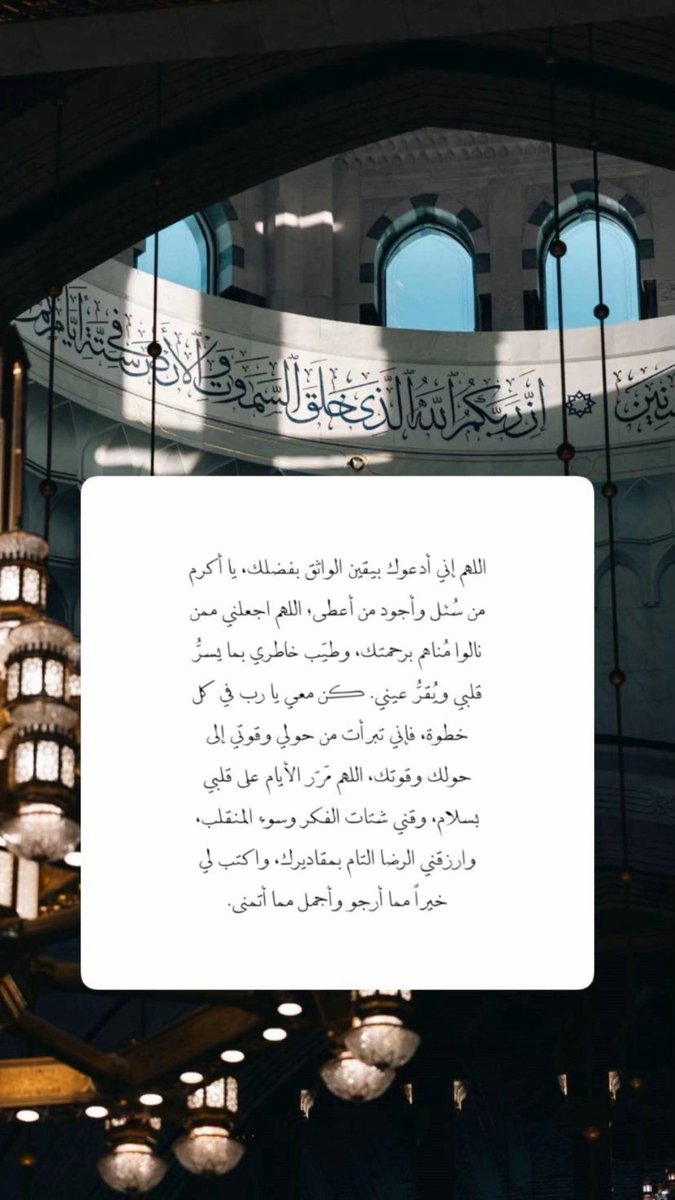 إن ربكم الله الذي خلق السموت والأرض في ستة أيام
اللهم إني أدعوك بيقين الواثق بفضلك، يا أكرم
من سُئل وأجود من أعطى؛ اللهم اجعلني ممن
نالوا مُناهم برحمتك، وطيّب خاطري بما يسرُّ
قلبي ويُقرُّ عيني. كن معي يا رب في كل
خطوة، فإني تبرأت من حولي وقوتي إلى
حولك وقوتك، اللهم مَرّر الأيام على قلبي
بسلام، وقني شتات الفكر وسوء المنقلب،
وارزقني الرضا التام بمقاديرك، واكتب لي
خيراً مما أرجو وأجمل مما أتمنى.